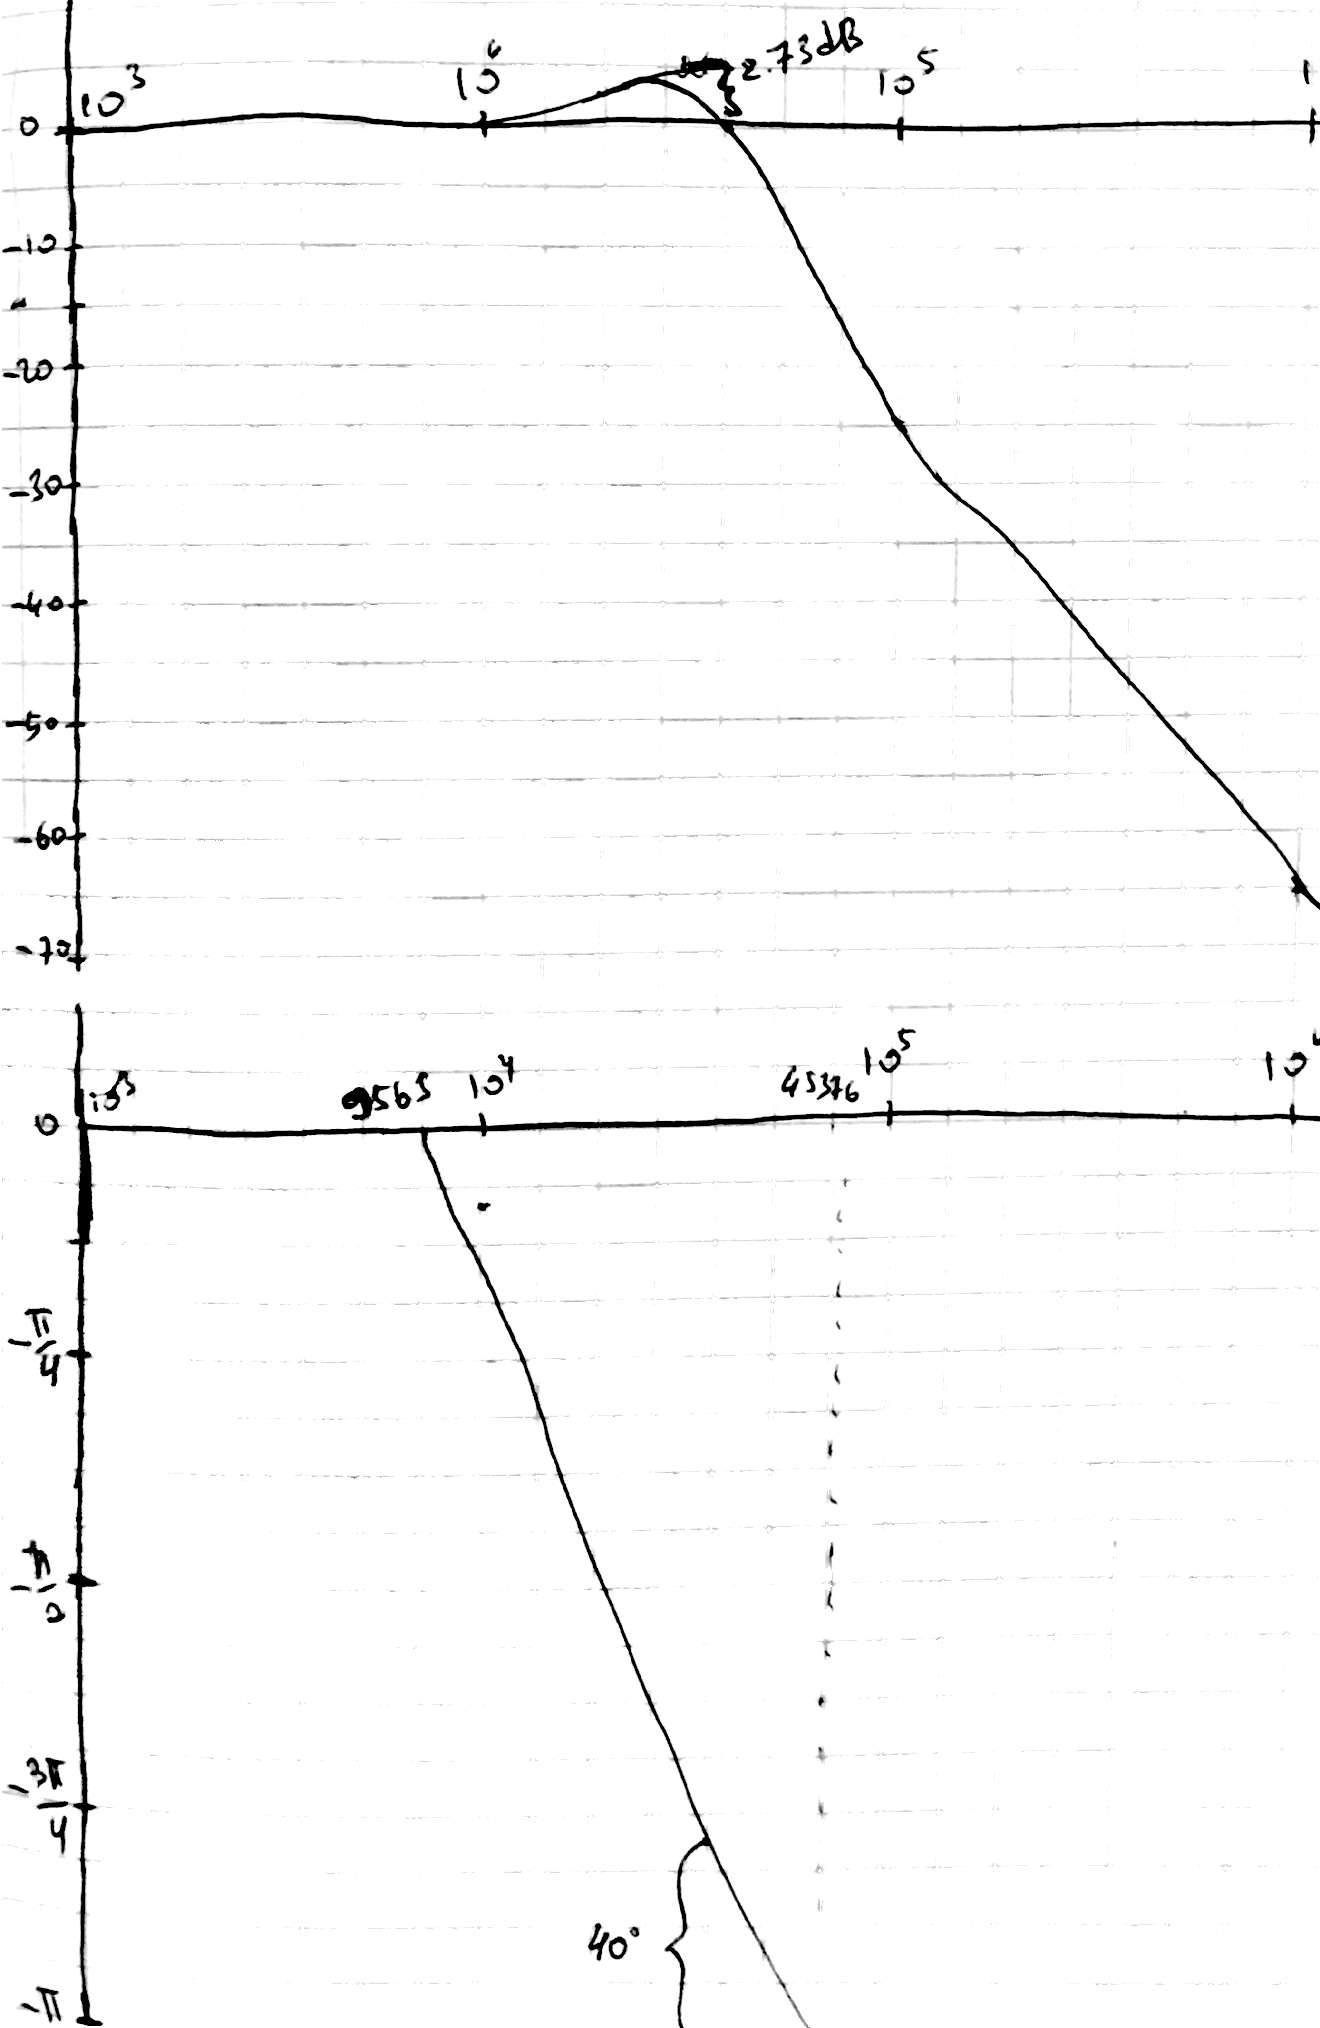 2.73dB
10³ 10⁴ 10⁵ 1
0
-10
-20
-30
-40
-50
-60
-70
10³ 9565 10⁴ 45376 10⁵ 10⁶
0
-π/4
-π/2
-3π/4
40°
-π